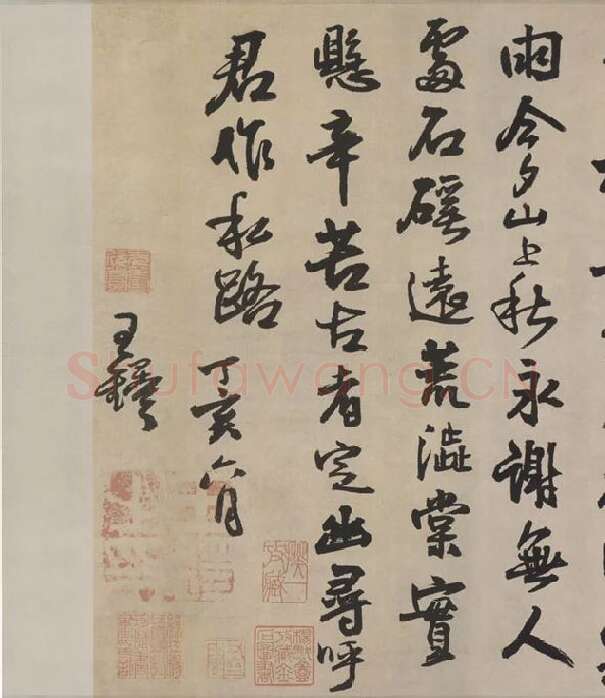 雨今夕山上秋永謝無人
處石磎遠荒澁棠實
懸辛苦古者定幽尋呼
君作私路 丁亥六月
王鐸
Shufawang.CN